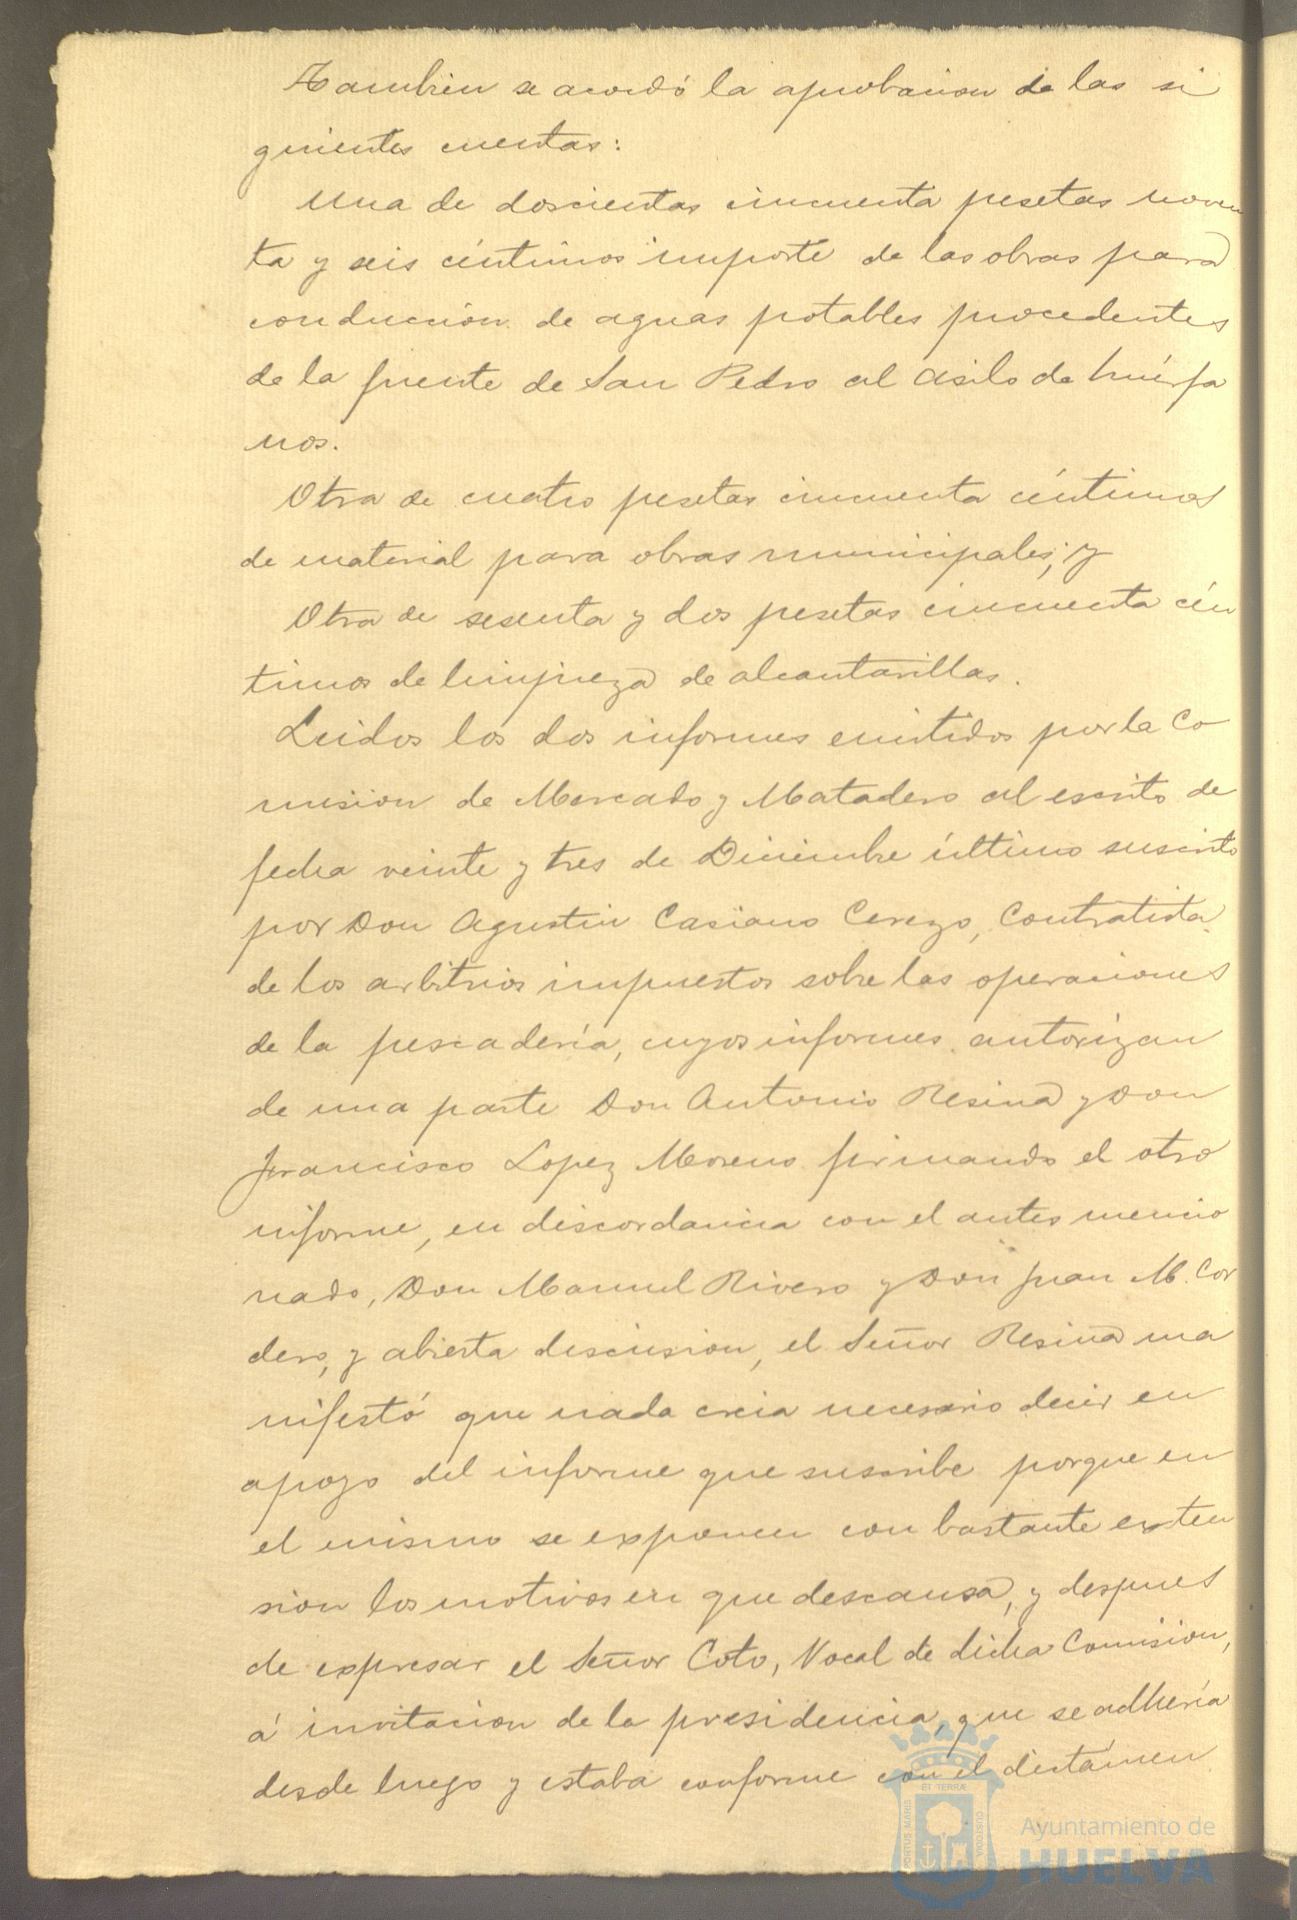 Tambien se acordó la aprobacion de las si
guientes cuentas:
Una de doscientas cincuenta pesetas noven
ta y seis céntimos importe de las obras para
conduccion de aguas potables procedentes
de la fuente de San Pedro al Asilo de huérfa
nos.
Otra de cuatro pesetas cincuenta céntimos
de material para obras municipales; y
Otra de sesenta y dos pesetas cincuenta cén
timos de limpieza de alcantarillas.
Leidos los dos informes emitidos por la Co
mision de Mercado y Matadero al escrito de
fecha veinte y tres de Diciembre último suscrito
por Don Agustin Casiano Cerezo, Contratista
de los arbitrios impuestos sobre las operaciones
de la pescadería, cuyos informes autorizan
de una parte Don Antonio Resina y Don
Francisco Lopez Moreno firmando el otro
informe, en discordancia con el antes mencio
nado, Don Manuel Rivero y Don Juan M. Cor
dero, y abierta discusion, el Señor Resina ma
nifestó que nada creia necesario decir en
apoyo del informe que suscribe porque en
el mismo se exponen con bastante exten
sion los motivos en que descansa, y despues
de expresar el Señor Coto, Vocal de dicha Comision,
á invitacion de la presidencia, que se adhería
desde luego y estaba conforme con el dictámen
PORTUS MARIS ET TERRÆ CUSTODIA
Ayuntamiento de
HUELVA